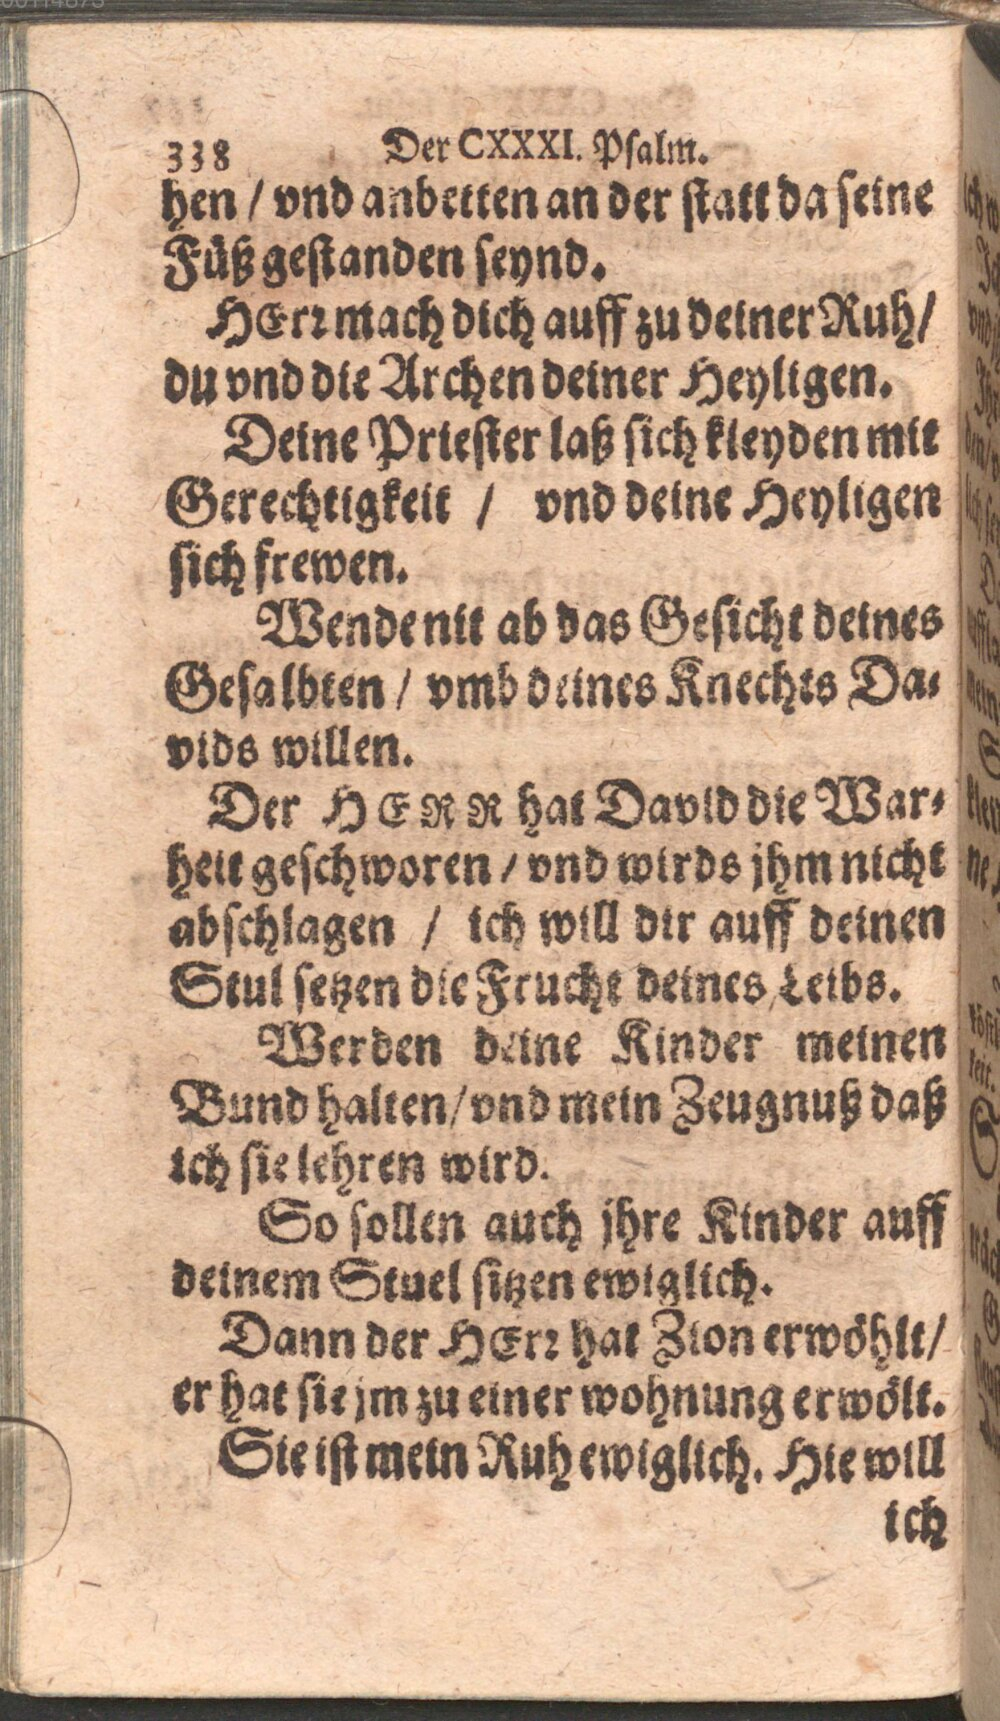 338 Der CXXXI. Psalm.
hen / vnd anbetten an der statt da seine
Füß gestanden seynd.
HErr mach dich auff zu deiner Ruh/
du vnd die Archen deiner Heyligen.
Deine Priester laß sich kleyden mit
Gerechtigkeit / vnd deine Heyligen
sich frewen.
Wende nit ab das Gesicht deines
Gesalbten / vmb deines Knechts Da-
vids willen.
Der HERR hat David die War-
heit geschworen / vnd wirds jhm nicht
abschlagen / ich will dir auff deinen
Stul setzen die Frucht deines Leibs.
Werden deine Kinder meinen
Bund halten/ vnd mein Zeugnuß daß
ich sie lehren wird.
So sollen auch jhre Kinder auff
deinem Stuel sitzen ewiglich.
Dann der HErr hat Zion erwöhlt/
er hat sie jm zu einer wohnung erwölt.
Sie ist mein Ruh ewiglich. Hie will
ich